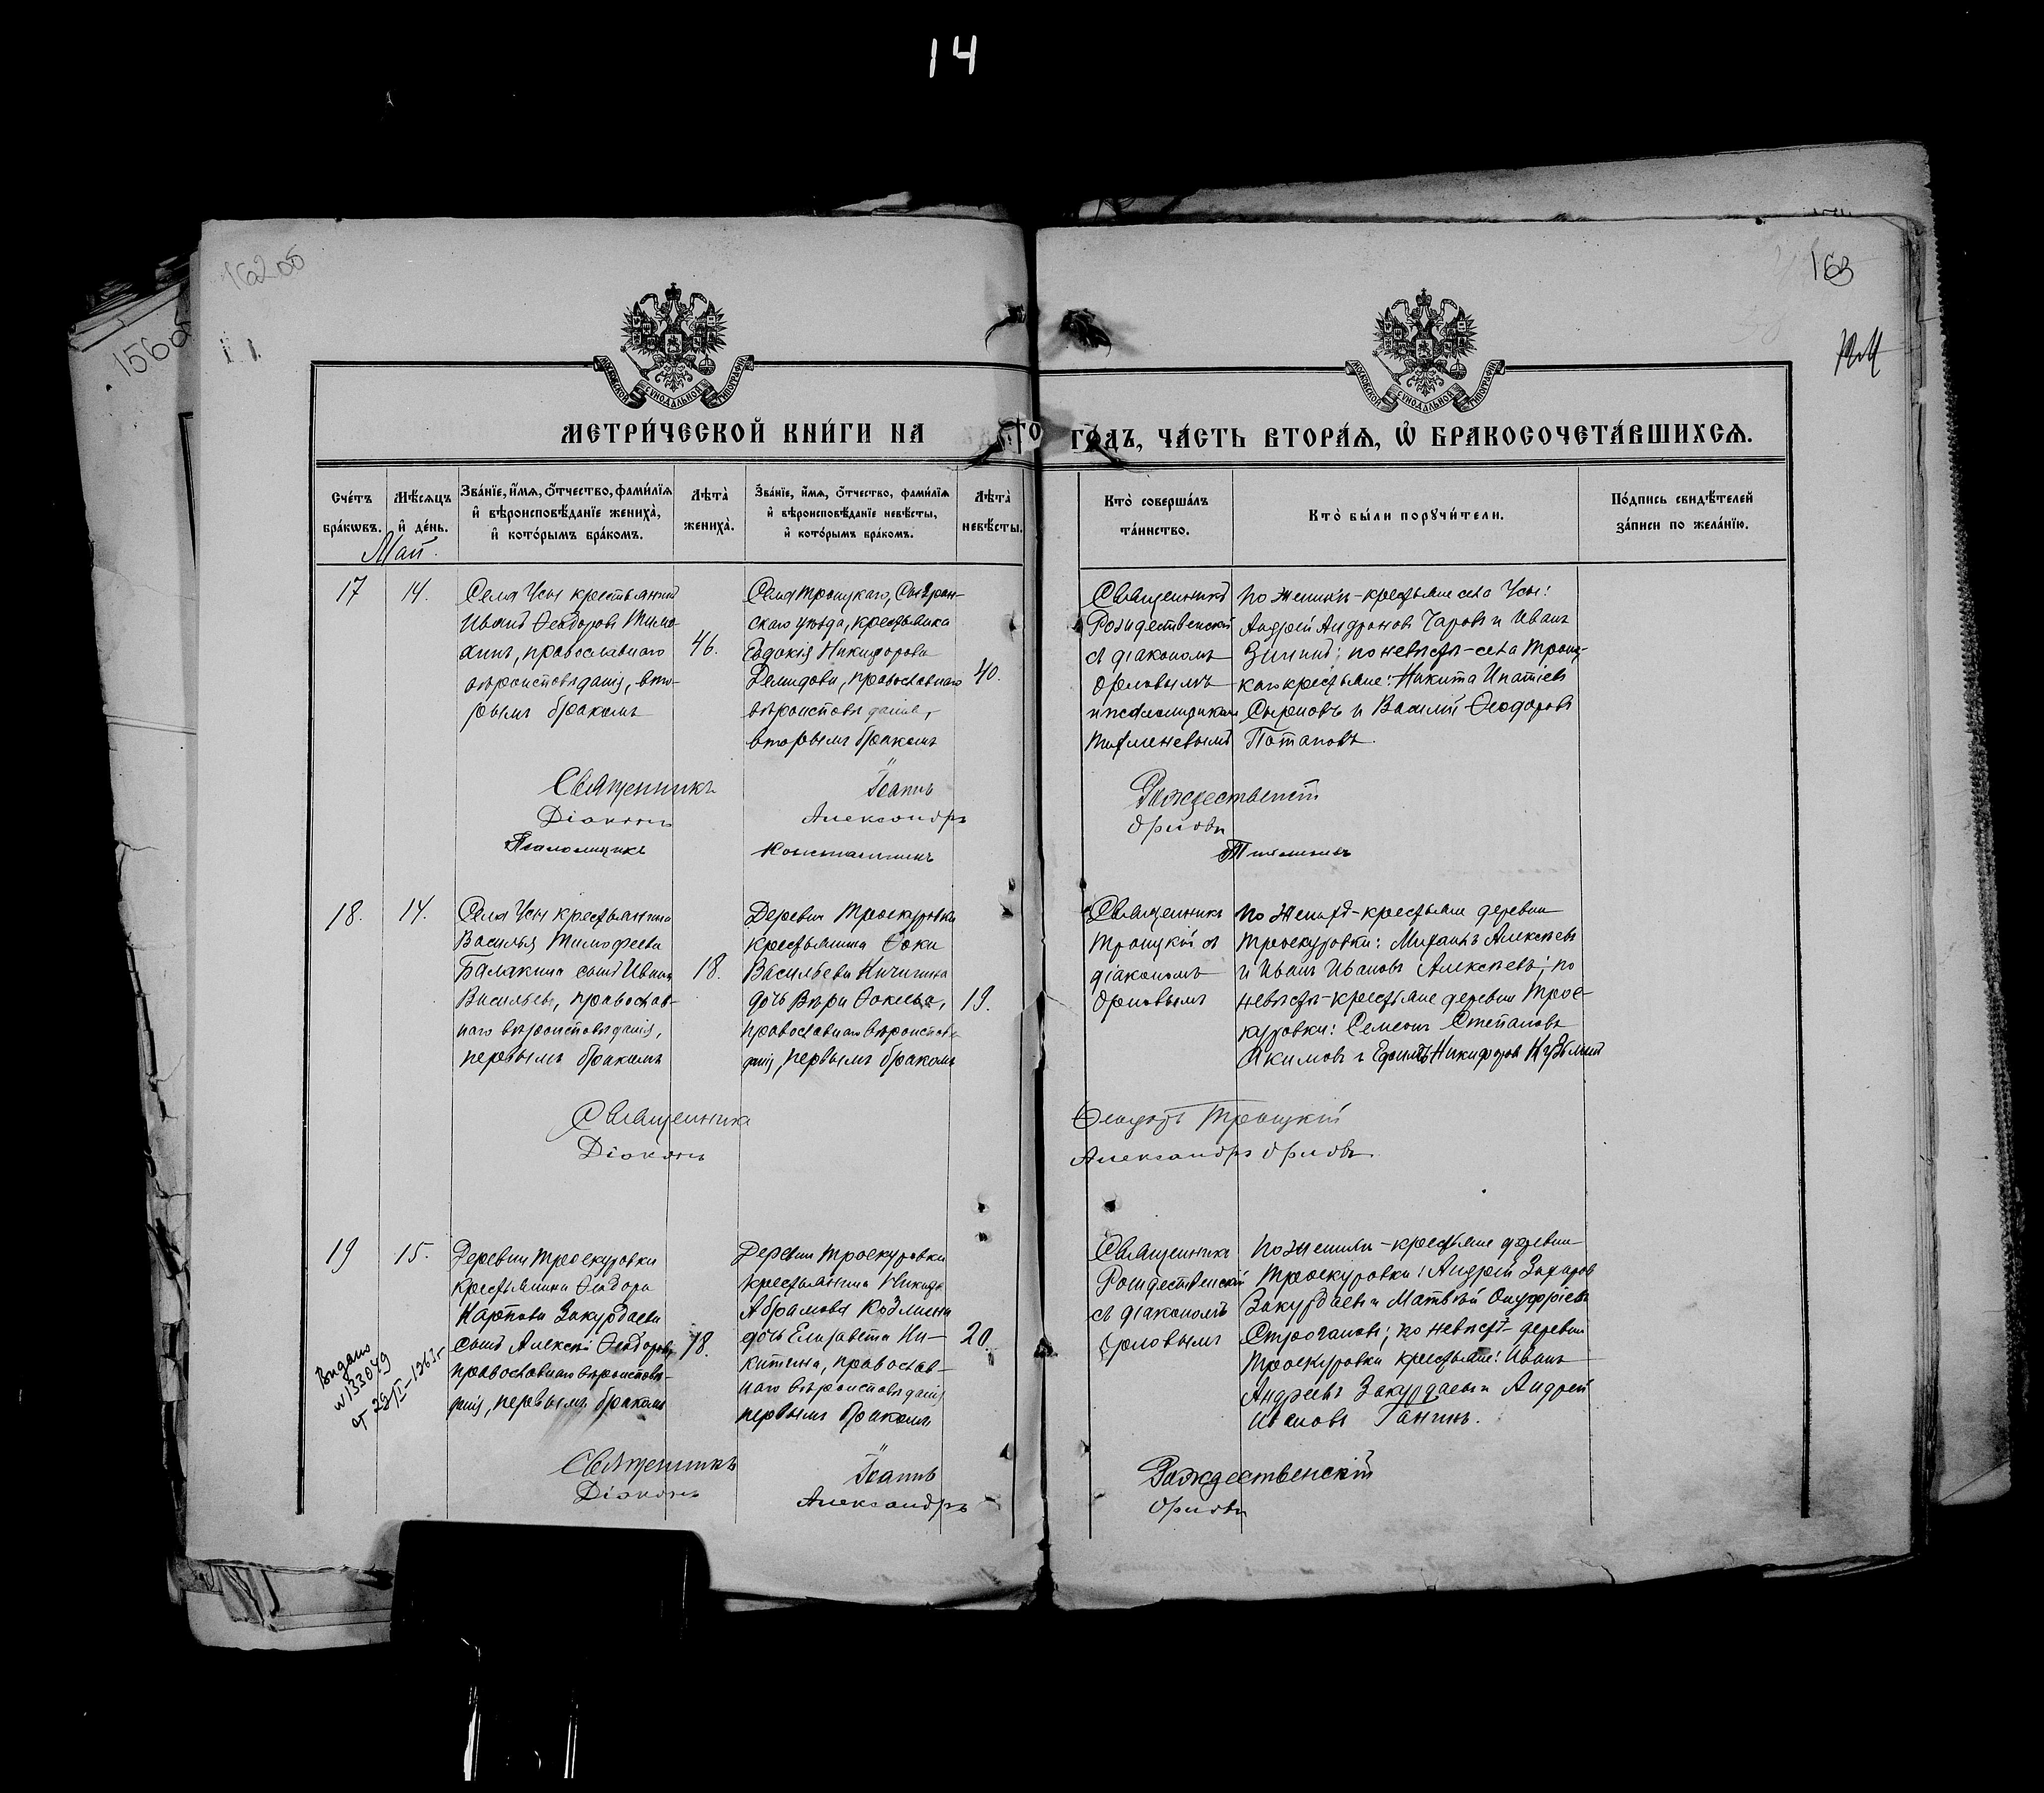 14
162 об
163
156 об
МОСКОВСКОЙ СУНОДАЛЬНОЙ ТИПОГРАФІИ
МОСКОВСКОЙ СУНОДАЛЬНОЙ ТИПОГРАФІИ
МЕТРИ́ЧЕСКОЙ КНИ́ГИ НА ГО́ДЪ, ЧА́СТЬ ВТОРА́Ѧ, Ѡ҆ БРАКОСОЧЕТА́ВШИХСѦ.
Сче́тъ бра́кѡвъ.
Мѣ́сѧцъ и҆ де́нь.
Зва́нїе, и҆́мѧ, ѻ҆́тчество, фами́лїѧ и҆ вѣроисповѣ́данїе жениха̀, и҆ кото́рымъ бра́комъ.
Лѣта̀ жениха̀.
Зва́нїе, и҆́мѧ, ѻ҆́тчество, фами́лїѧ и҆ вѣроисповѣ́данїе невѣ́сты, и҆ кото́рымъ бра́комъ.
Лѣта̀ невѣ́сты.
Кто̀ соверша́лъ та́инство.
Кто̀ бы́ли порꙋчи́тели.
По́дпись свидѣ́телей за́писи по жела́нїю.
Май.
17
14.
Села Усы крестьянинъ
Иванъ Ѳеодоровъ Тимо
хинъ, православнаго
вѣроисповѣданія, вто-
рымъ бракомъ
46.
Села Троицкаго, Сызран-
скаго уѣзда, крестьянка
Евдокія Никифорова
Демидова, православнаго
вѣроисповѣданія,
вторымъ бракомъ
40.
Священникъ
Рождественскій
съ діакономъ
Орловымъ
и псаломщикомъ
По женихѣ - крестьяне села Усы:
Андрей Андроновъ Чаровъ и Иванъ
Зининъ; по невѣстѣ - села Троиц-
каго крестьяне: Никита Ипатіевъ
и Василій Ѳеодоровъ
Потаповъ.
Священникъ Іоаннъ Рождественскій
Діаконъ Александръ Орловъ
Псаломщикъ Константинъ
18.
14.
Села Усы крестьянина
Василья Тимофеева
Балакина сынъ Иванъ
Васильевъ, православ-
наго вѣроисповѣданія,
первымъ бракомъ
18.
Деревни Троекуровки
крестьянина Ѳоки
Васильева Кичигина
дочь Вѣра Ѳокіева,
православнаго вѣроисповѣ-
данія, первымъ бракомъ
19.
Священникъ
Троицкій съ
діакономъ
Орловымъ
По женихѣ - крестьяне деревни
Троекуровки: Михаилъ Алексѣевъ
и Иванъ Ивановъ Алексѣевъ; по
невѣстѣ - крестьяне деревни Трое-
куровки: Семенъ Степановъ
Акимовъ и Ефимъ Никифоровъ
Священникъ Ѳеодоръ Троицкій
Діаконъ Александръ Орловъ
19
15.
Деревни Троекуровки
крестьянина Ѳеодора
Карпова Закурдаева
сынъ Алексѣй Ѳеодоровъ
православнаго вѣроисповѣ-
данія, первымъ бракомъ
18.
Деревни Троекуровки
крестьянина Никиты
Абрамова Козлина
дочь Елизавета Ни-
китина, православ-
наго вѣроисповѣданія
первымъ бракомъ
20.
Священникъ
Рождественскій
съ діакономъ
Орловымъ
По женихѣ - крестьяне деревни
Троекуровки: Андрей Захаровъ
Закурдаевъ и Матвѣй Онуфріевъ
Строгановъ; по невѣстѣ - деревни
Троекуровки крестьяне: Иванъ
Андреевъ Закурдаевъ и Андрей
Ивановъ Ганинъ.
Выдано
№133049
от 29/I-1963г
Священникъ Іоаннъ Рождественскій
Діаконъ Александръ Орловъ